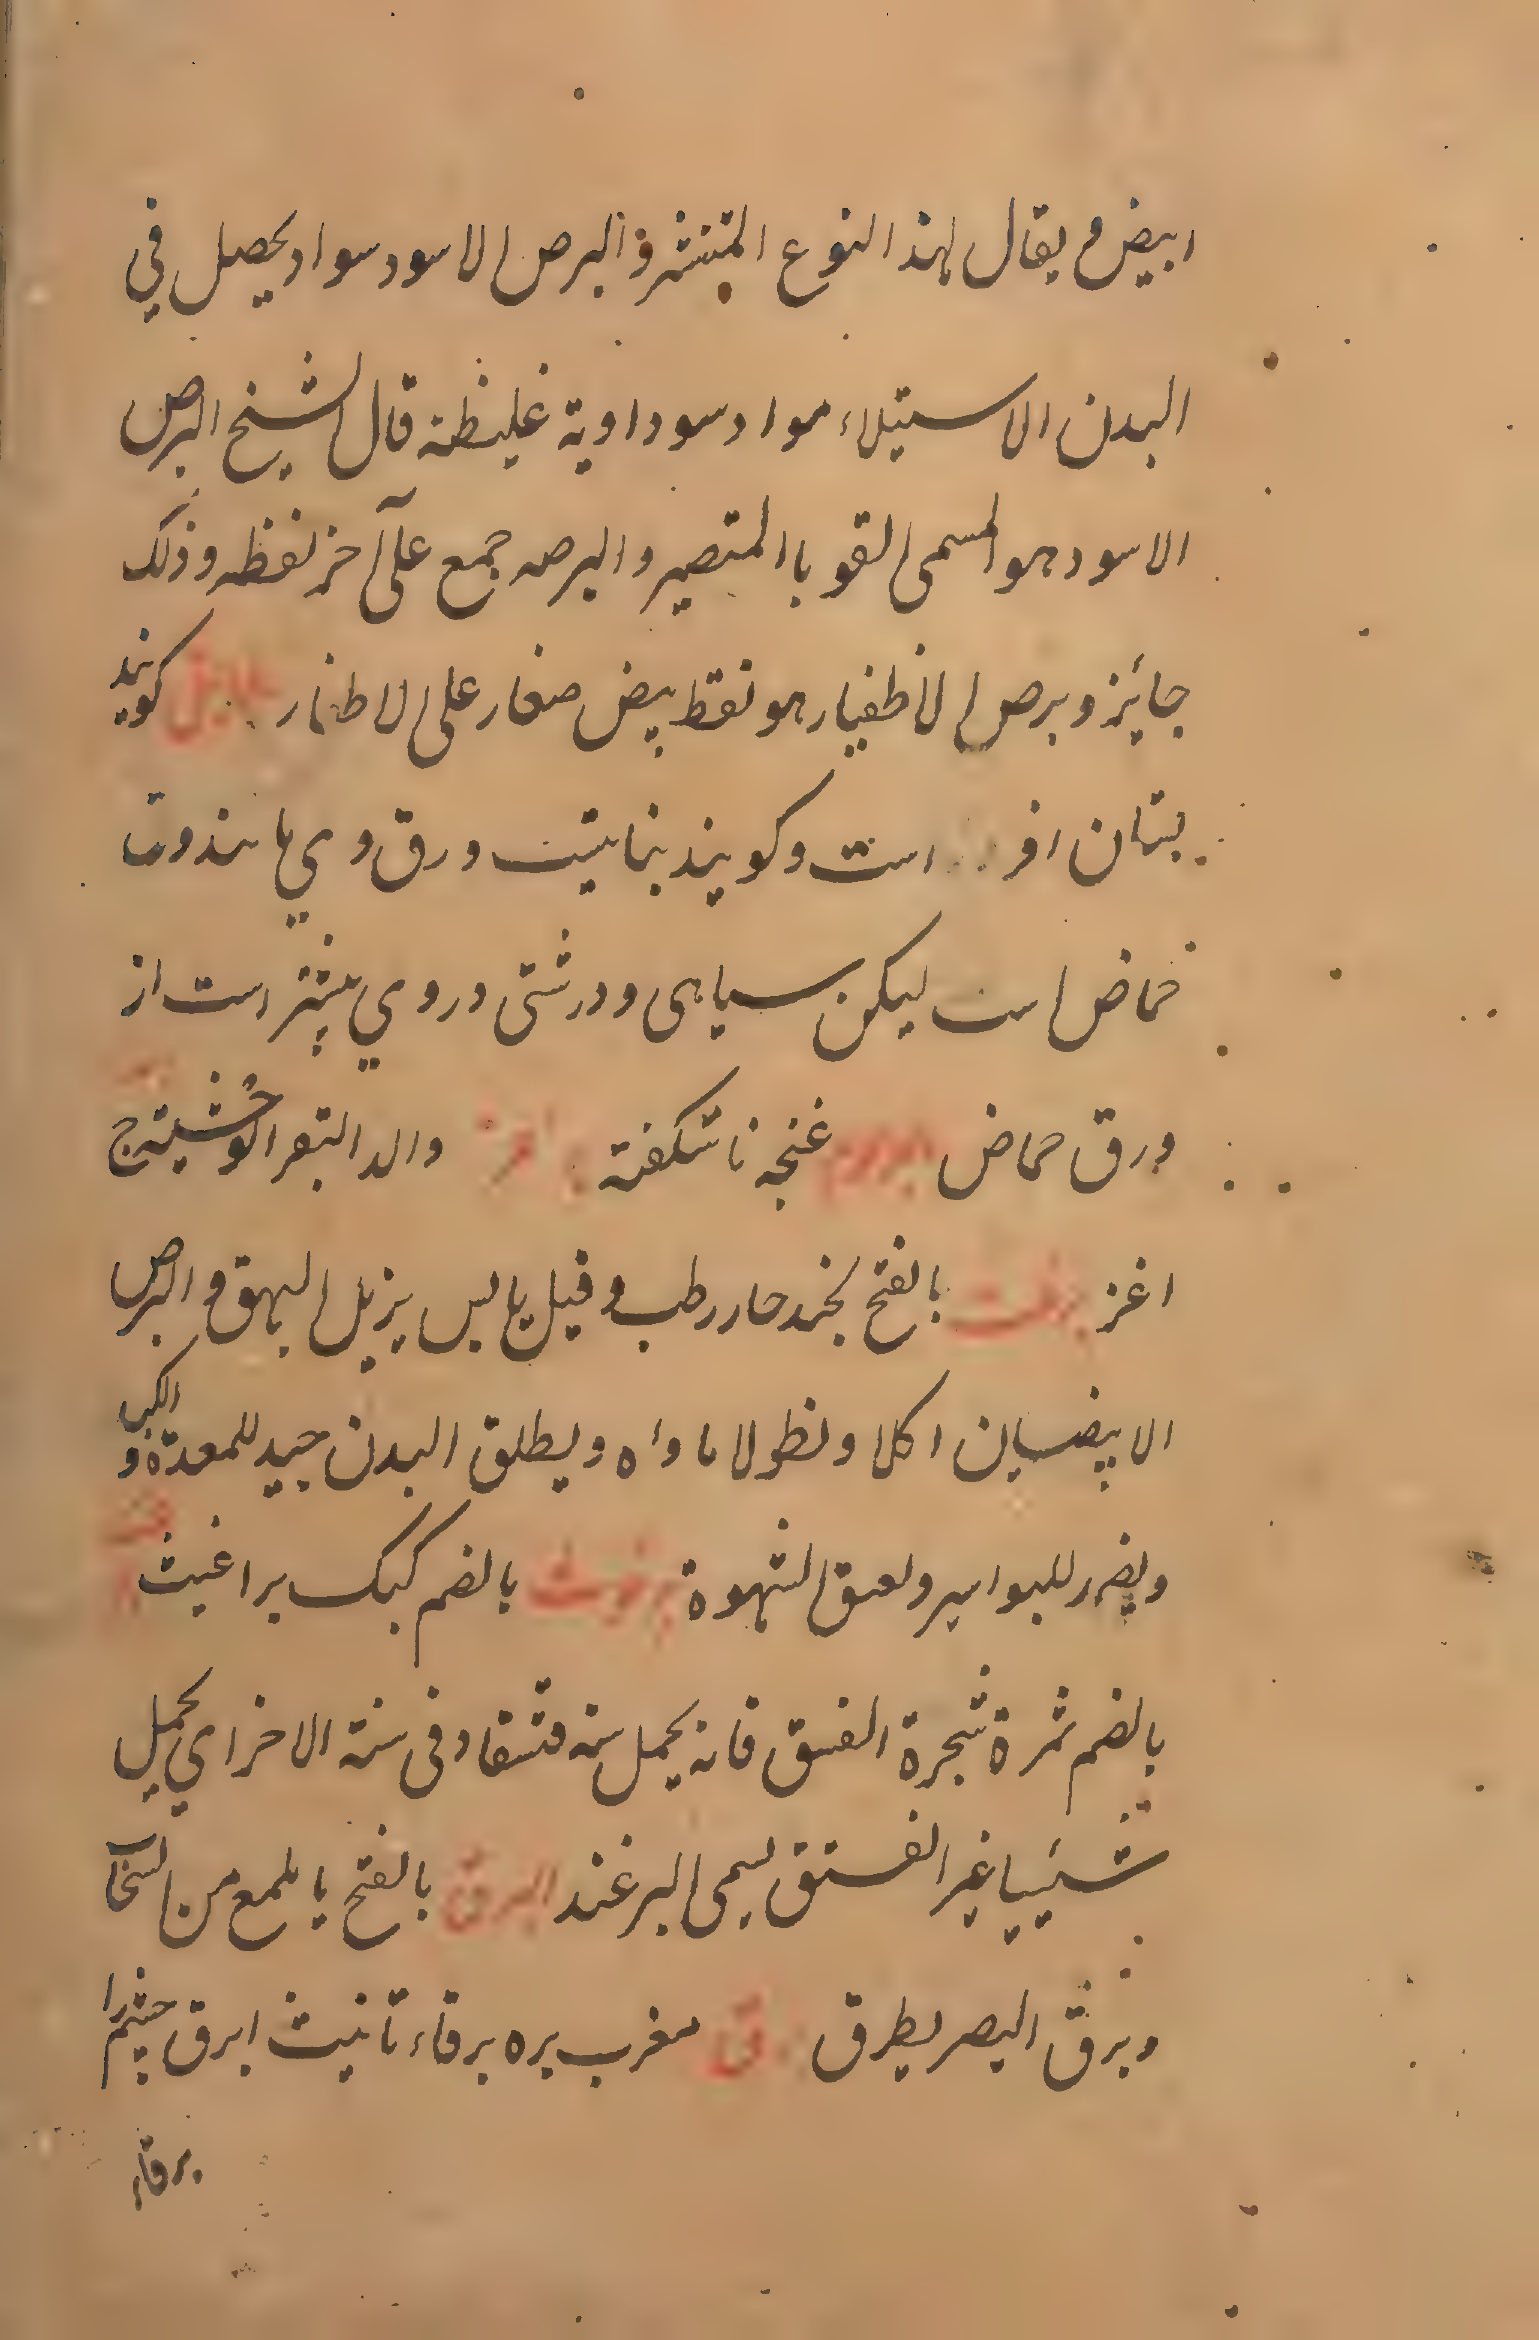 ابيض و يقال لهذا النوع المنتشر و البرص الاسود سواد يحصل في
البدن الاستيلاء مواد سوداوية غليظة قال الشيخ البرص
الاسود هو المسمى القوبا المتصير و البرصه جمع على آخر لفظه و ذلك
جايز و برص الاظفيار هو نقط بيض صغار على الاظفار كويند
بستان افر است و كويند نباتيست ورق وي مانند ورق
حماض است ليكن سياهى و درشتى در وي بيشتر است از
ورق حماض غنچه ناشكفته والد البقر الوحشية ج
اغز برغت بالفتح بخند حار رطب و قيل يابس يزيل البهق و البرص
الابيضيان اكلا و نطولا ماواه و يطلق البدن جيد للمعدة و الكبد
و يضر للبواسير و لعق الشهوة برغوث بالضم كيك براغيث
بالضم ثمرة شجرة الفستق فانه يحمل سنة فستقا و فى سنة الاخراي يحمل
شيئيا غير الفستق يسمى البرغند البرق بالفتح يا يلمع من السحاب
و برق البصر يطرق برق معرب بره برقاء تانيث ابرق چشم را
برقاء